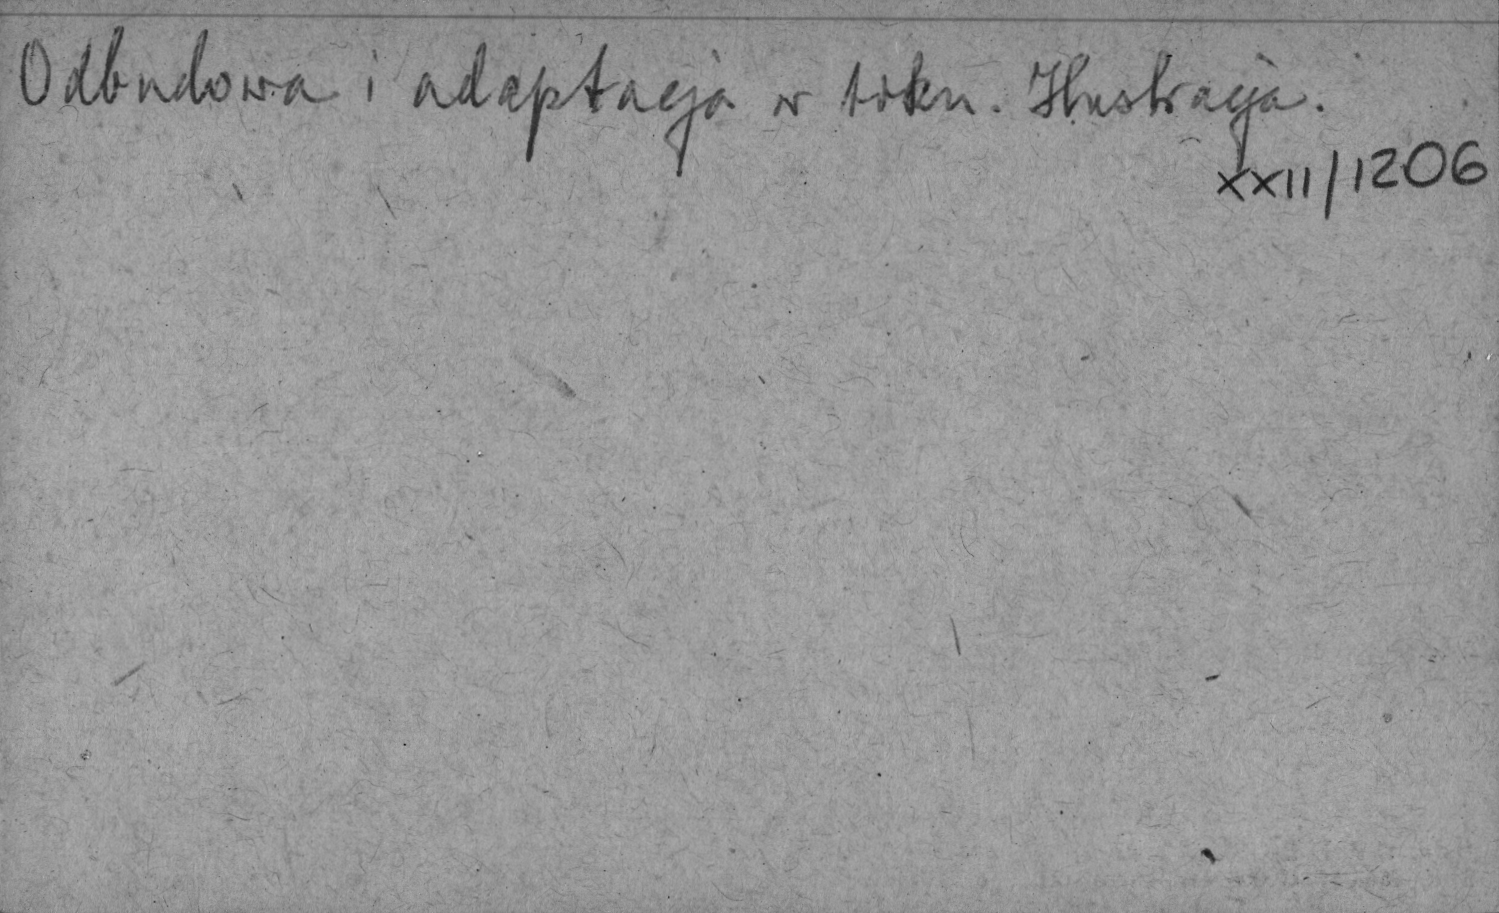 Odbudowa i adaptacja w toku. Ilustracja.
XXII/1206